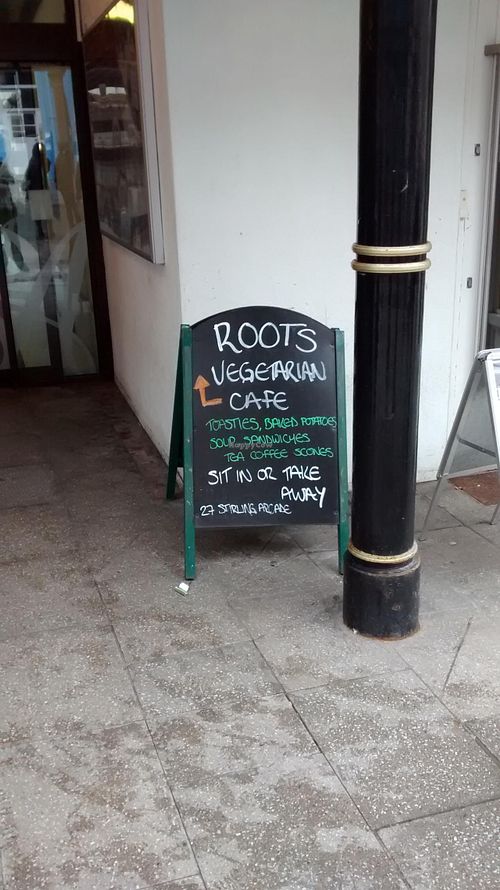 ROOTS
VEGETARIAN
CAFE
TOASTIES, BAKED POTATOES
SOUP SANDWICHES
HappyCow
TEA COFFEE SCONES
SIT IN OR TAKE
AWAY
27 STIRLING ARCADE